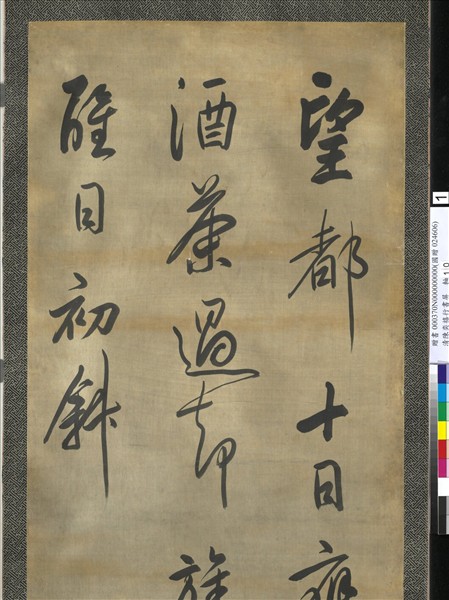 望都十日
酒茶過却
醒日初斜
1
贈書 000370N000000000(國贈 024606)
清陳奕禧行書屏 軸 1:0